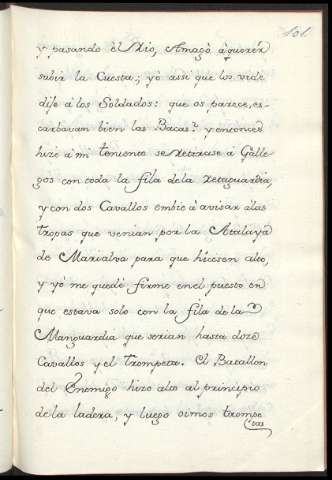 101
y pasando èl Rio, Amagò à querér
subir la Cuesta; yò assi que los vide
dije à los Soldados: que os parece, es-
carbavan bien las Bacas? y entonces
hizè à mi teniente se retirase à Galle-
gos con toda la fila dela retaguardia,
y con dos Cavallos embiè à avisar alas
tropas que venian por la Atalaya
de Marialva para que hiciesen alto,
y yò me quedè firme en el puesto en
que estava solo con la fila de la
Manguardia que serian hasta doze
Cavallos y el trompeta. El Batallon
del Enemigo hizo alto al principio
de la ladera, y luego oimos trompe
tas